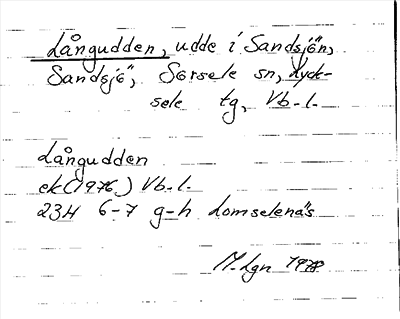 Långudden, udde i Sandsjön,
Sandsjö, Sorsele sn, Lyck-
sele tg, Vb. l.
Långudden
ek (1976) Vb. l.
23H 6-7 g-h Lomselenäs
M. Lgn 1978